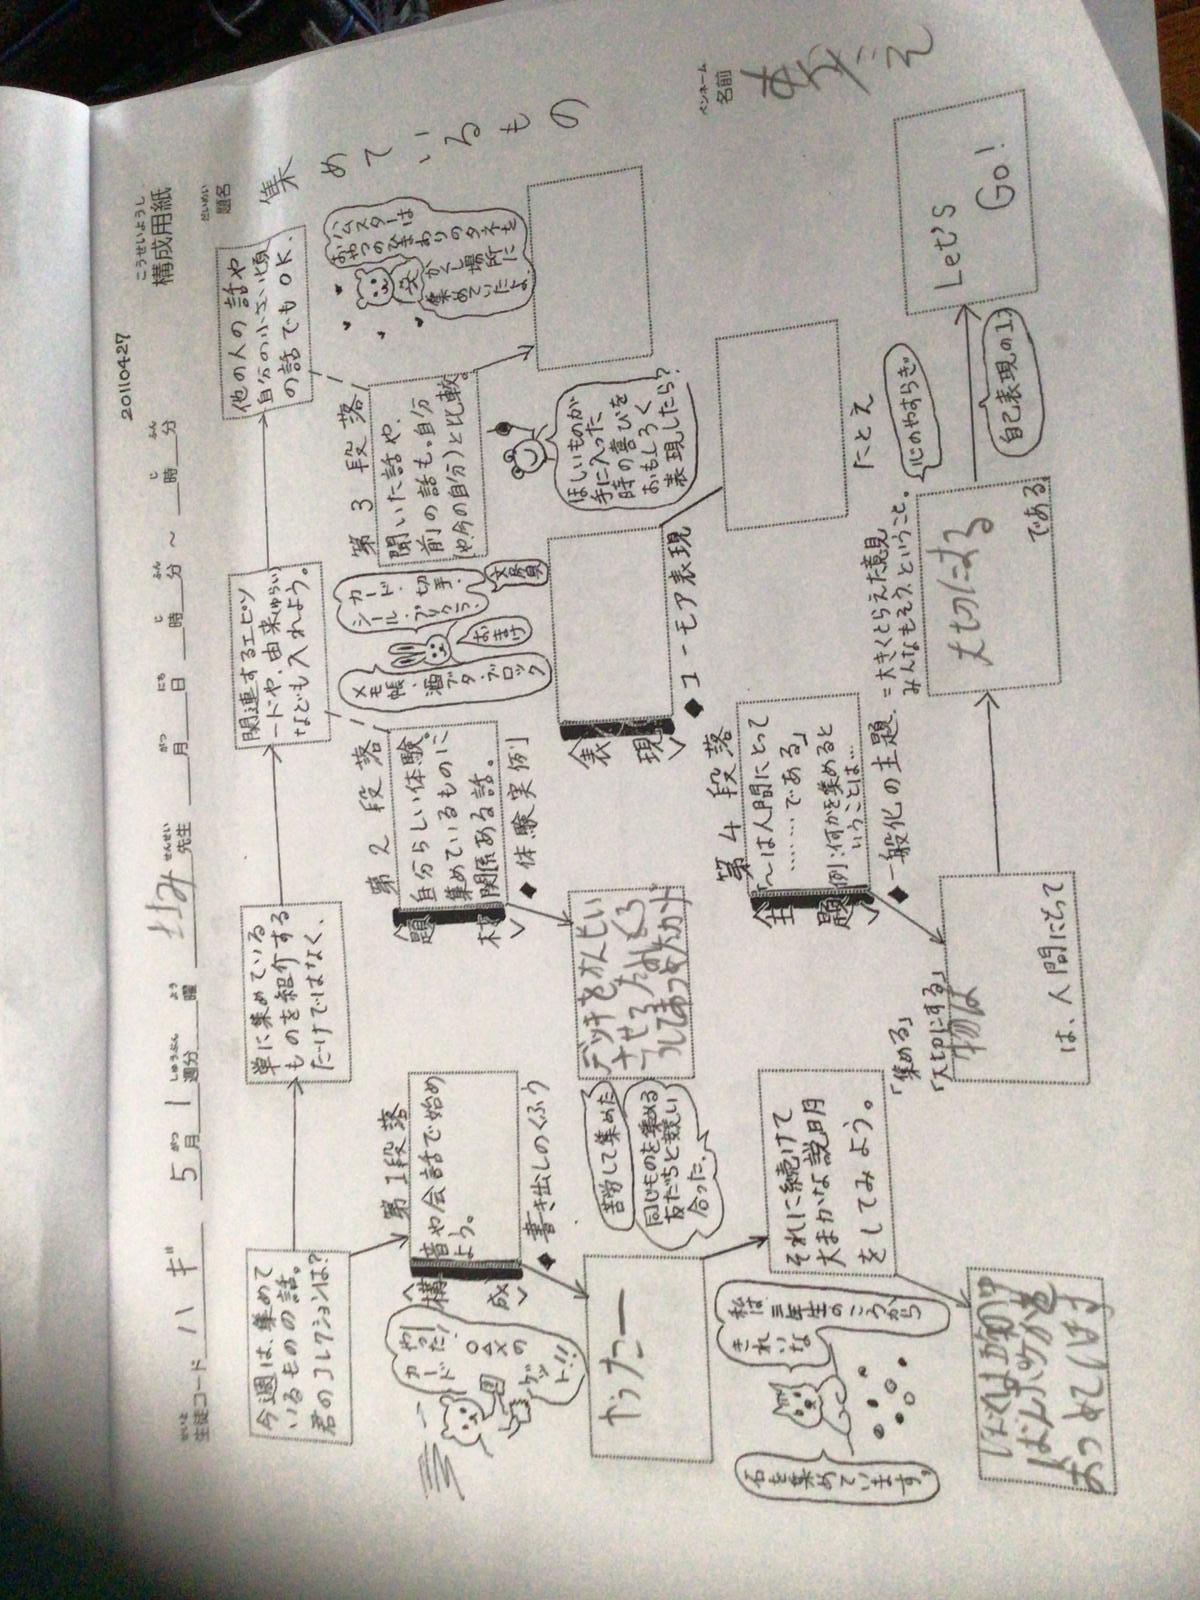 構成用紙
こうせいようし
20110427
生徒コード ハギ 5月1週分 曜 先生 月 日 時 分 ～ 時 分
題名
集めているもの
ペンネーム
名前
今週は、集めて
いるものの話。
君のコレクションは？
単に集めている
ものを紹介する
だけではなく、
関連するエピソ
ードや、由来(ゆらい)
なども入れよう。
他の人の話や
自分の小さい頃
の話でもOK.
第1段落
〈構成〉
昔や会話で始め
よう。
◆書き出しのくふう
やった！
カード
○△×の
ゲッ
ト!!
やったー
それに続けて
大まかな説明
をしてみよう。
私は三年生のころから
きれいな
石を集めています。
あつめています
第2段落
〈題材〉
自分らしい体験。
集めているものに
関係ある話。
◆体験実例
カード・切手・
シール・プリクラ・
文房具
おまけ
メモ帳・酒ブタ・ブロック
苦労して集めた
同じものを集める
友だちと競い
合った。
第3段落
聞いた話や、
前の話も。自分
(今の自分)と比較。
ハムスターは
おやつのひまわりのタネを
かくし場所に
集めていたよ。
〈表現〉
◆ユーモア表現
ほしいものが
手に入った
時の喜びを
おもしろく
表現したら？
「たとえ
第4段落
〈主題〉
「～は人間にとって
……である」
例：何かを集めると
いうことは…
◆一般化の主題
＝大きくとらえた意見
みんなもそう、ということ。
「集める」
「大切にする」
物は
は、人間にとって
大切にする
である。
心のやすらぎ。
自己表現の1つ
Let's
Go!